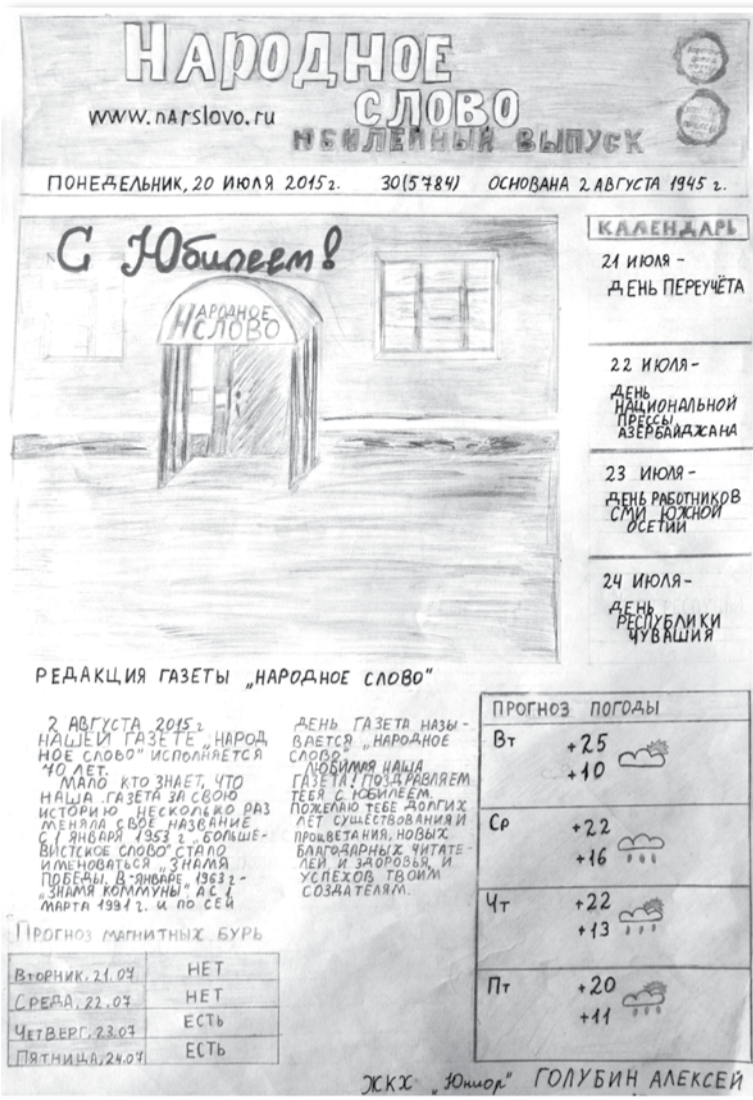 НАРОДНОЕ
СЛОВО
www.narslovo.ru
ЮБИЛЕЙНЫЙ ВЫПУСК
ПОНЕДЕЛЬНИК, 20 ИЮЛЯ 2015г. 30(5784) ОСНОВАНА 2 АВГУСТА 1945 г.
С Юбилеем!
НАРОДНОЕ
СЛОВО
КАЛЕНДАРЬ
21 ИЮЛЯ –
ДЕНЬ ПЕРЕУЧЁТА
22 ИЮЛЯ –
ДЕНЬ
НАЦИОНАЛЬНОЙ
ПРЕССЫ
АЗЕРБАЙДЖАНА
23 ИЮЛЯ –
ДЕНЬ РАБОТНИКОВ
СМИ ЮЖНОЙ
ОСЕТИИ
24 ИЮЛЯ –
ДЕНЬ
РЕСПУБЛИКИ
ЧУВАШИЯ
РЕДАКЦИЯ ГАЗЕТЫ „НАРОДНОЕ СЛОВО"
2 АВГУСТА 2015г
НАШЕЙ ГАЗЕТЕ „НАРОД
НОЕ СЛОВО" ИСПОЛНЯЕТСЯ
70 ЛЕТ.
МАЛО КТО ЗНАЕТ, ЧТО
НАША ГАЗЕТА ЗА СВОЮ
ИСТОРИЮ НЕСКОЛЬКО РАЗ
МЕНЯЛА СВОЕ НАЗВАНИЕ
С 1 ЯНВАРЯ 1953 г „БОЛЬШЕ-
ВИСТСКОЕ СЛОВО" СТАЛО
ИМЕНОВАТЬСЯ „ЗНАМЯ
ПОБЕДЫ. В ЯНВАРЕ 1963г-
„ЗНАМЯ КОММУНЫ" А С 1
МАРТА 1991 г. И ПО СЕЙ
ДЕНЬ ГАЗЕТА НАЗЫ-
ВАЕТСЯ „НАРОДНОЕ
СЛОВО"
ЛЮБИМАЯ НАША
ГАЗЕТА! ПОЗДРАВЛЯЕМ
ТЕБЯ С ЮБИЛЕЕМ.
ПОЖЕЛАЮ ТЕБЕ ДОЛГИХ
ЛЕТ СУЩЕСТВОВАНИЯ И
ПРОЦВЕТАНИЯ, НОВЫХ
БЛАГОДАРНЫХ ЧИТАТЕ-
ЛЕЙ И ЗДОРОВЬЯ, И
УСПЕХОВ ТВОИМ
СОЗДАТЕЛЯМ.
ПРОГНОЗ ПОГОДЫ
Вт +25
+10
Ср +22
+16
Чт +22
+13
Пт +20
+11
ПРОГНОЗ МАГНИТНЫХ БУРЬ
ВТОРНИК, 21.07 НЕТ
СРЕДА, 22.07 НЕТ
ЧЕТВЕРГ, 23.07 ЕСТЬ
ПЯТНИЦА, 24.07 ЕСТЬ
ЖКХ „Юниор" ГОЛУБИН АЛЕКСЕЙ